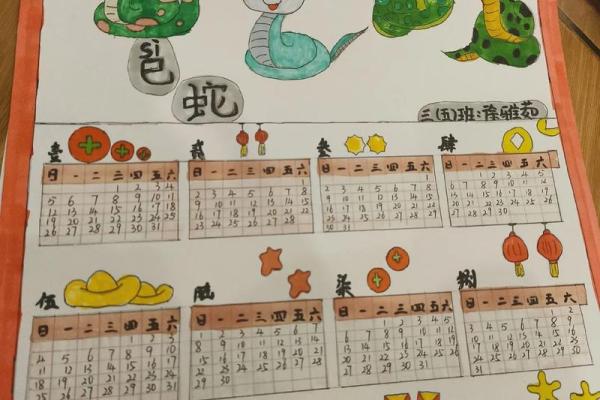 sì
巳
蛇
三(五)班:
壹
日 一 二 三 四 五 六
1 2 3 4
5 6 7 8 9 10 11
12 13 14 15 16 17 18
19 20 21 22 23 24 25
26 27 28 29 30 31
贰
日 一 二 三 四 五 六
1
2 3 4 5 6 7 8
9 10 11 12 13 14 15
16 17 18 19 20 21 22
23 24 25 26 27 28
叁
日 一 二 三 四 五 六
1
2 3 4 5 6 7 8
9 10 11 12 13 14 15
16 17 18 19 20 21 22
23 24 25 26 27 28 29
30 31
肆
日 一 二 三 四 五 六
1 2 3 4 5
6 7 8 9 10 11 12
13 14 15 16 17 18 19
20 21 22 23 24 25 26
27 28 29 30
伍
日 一 二 三 四 五 六
1 2 3
4 5 6 7 8 9 10
11 12 13 14 15 16 17
18 19 20 21 22 23 24
25 26 27 28 29 30 31
陆
日 一 二 三 四 五 六
1 2 3 4 5 6 7
8 9 10 11 12 13 14
15 16 17 18 19 20 21
22 23 24 25 26 27 28
29 30
柒
日 一 二 三 四 五 六
1 2 3 4 5
6 7 8 9 10 11 12
13 14 15 16 17 18 19
20 21 22 23 24 25 26
27 28 29 30 31
捌
日 一 二 三 四 五 六
1 2
3 4 5 6 7 8 9
10 11 12 13 14 15 16
17 18 19 20 21 22 23
24 25 26 27 28 29 30
31